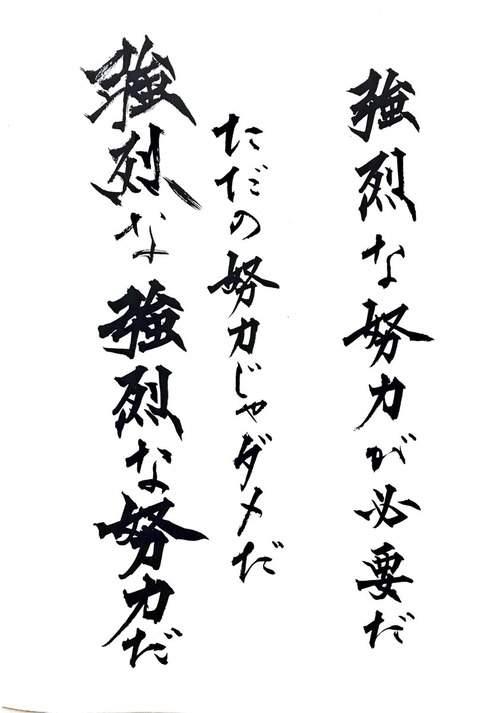 強烈な努力が必要だ
ただの努力じゃダメだ
強烈な強烈な努力だ